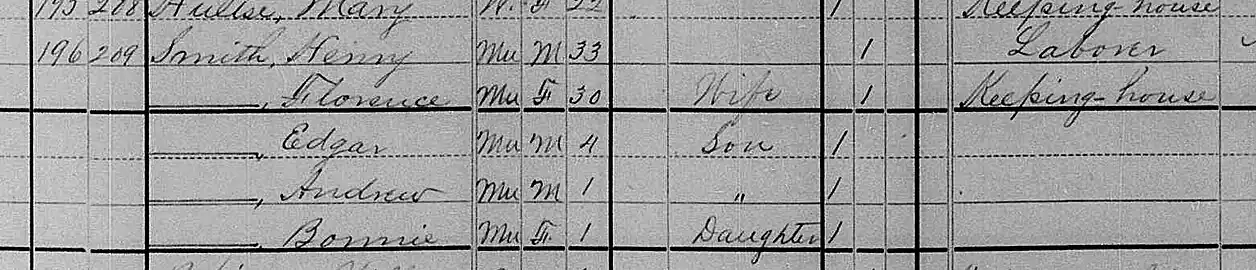 195 208 Hulise, Mary W. F 22 1 Keeping-house
196 209 Smith, Henry Mu M 33 1 Laborer
———, Florence Mu F 30 Wife 1 Keeping-house
———, Edgar Mu M 4 Son 1
———, Andrew Mu M 1 " 1
———, Bonnie Mu F 1 Daughter 1